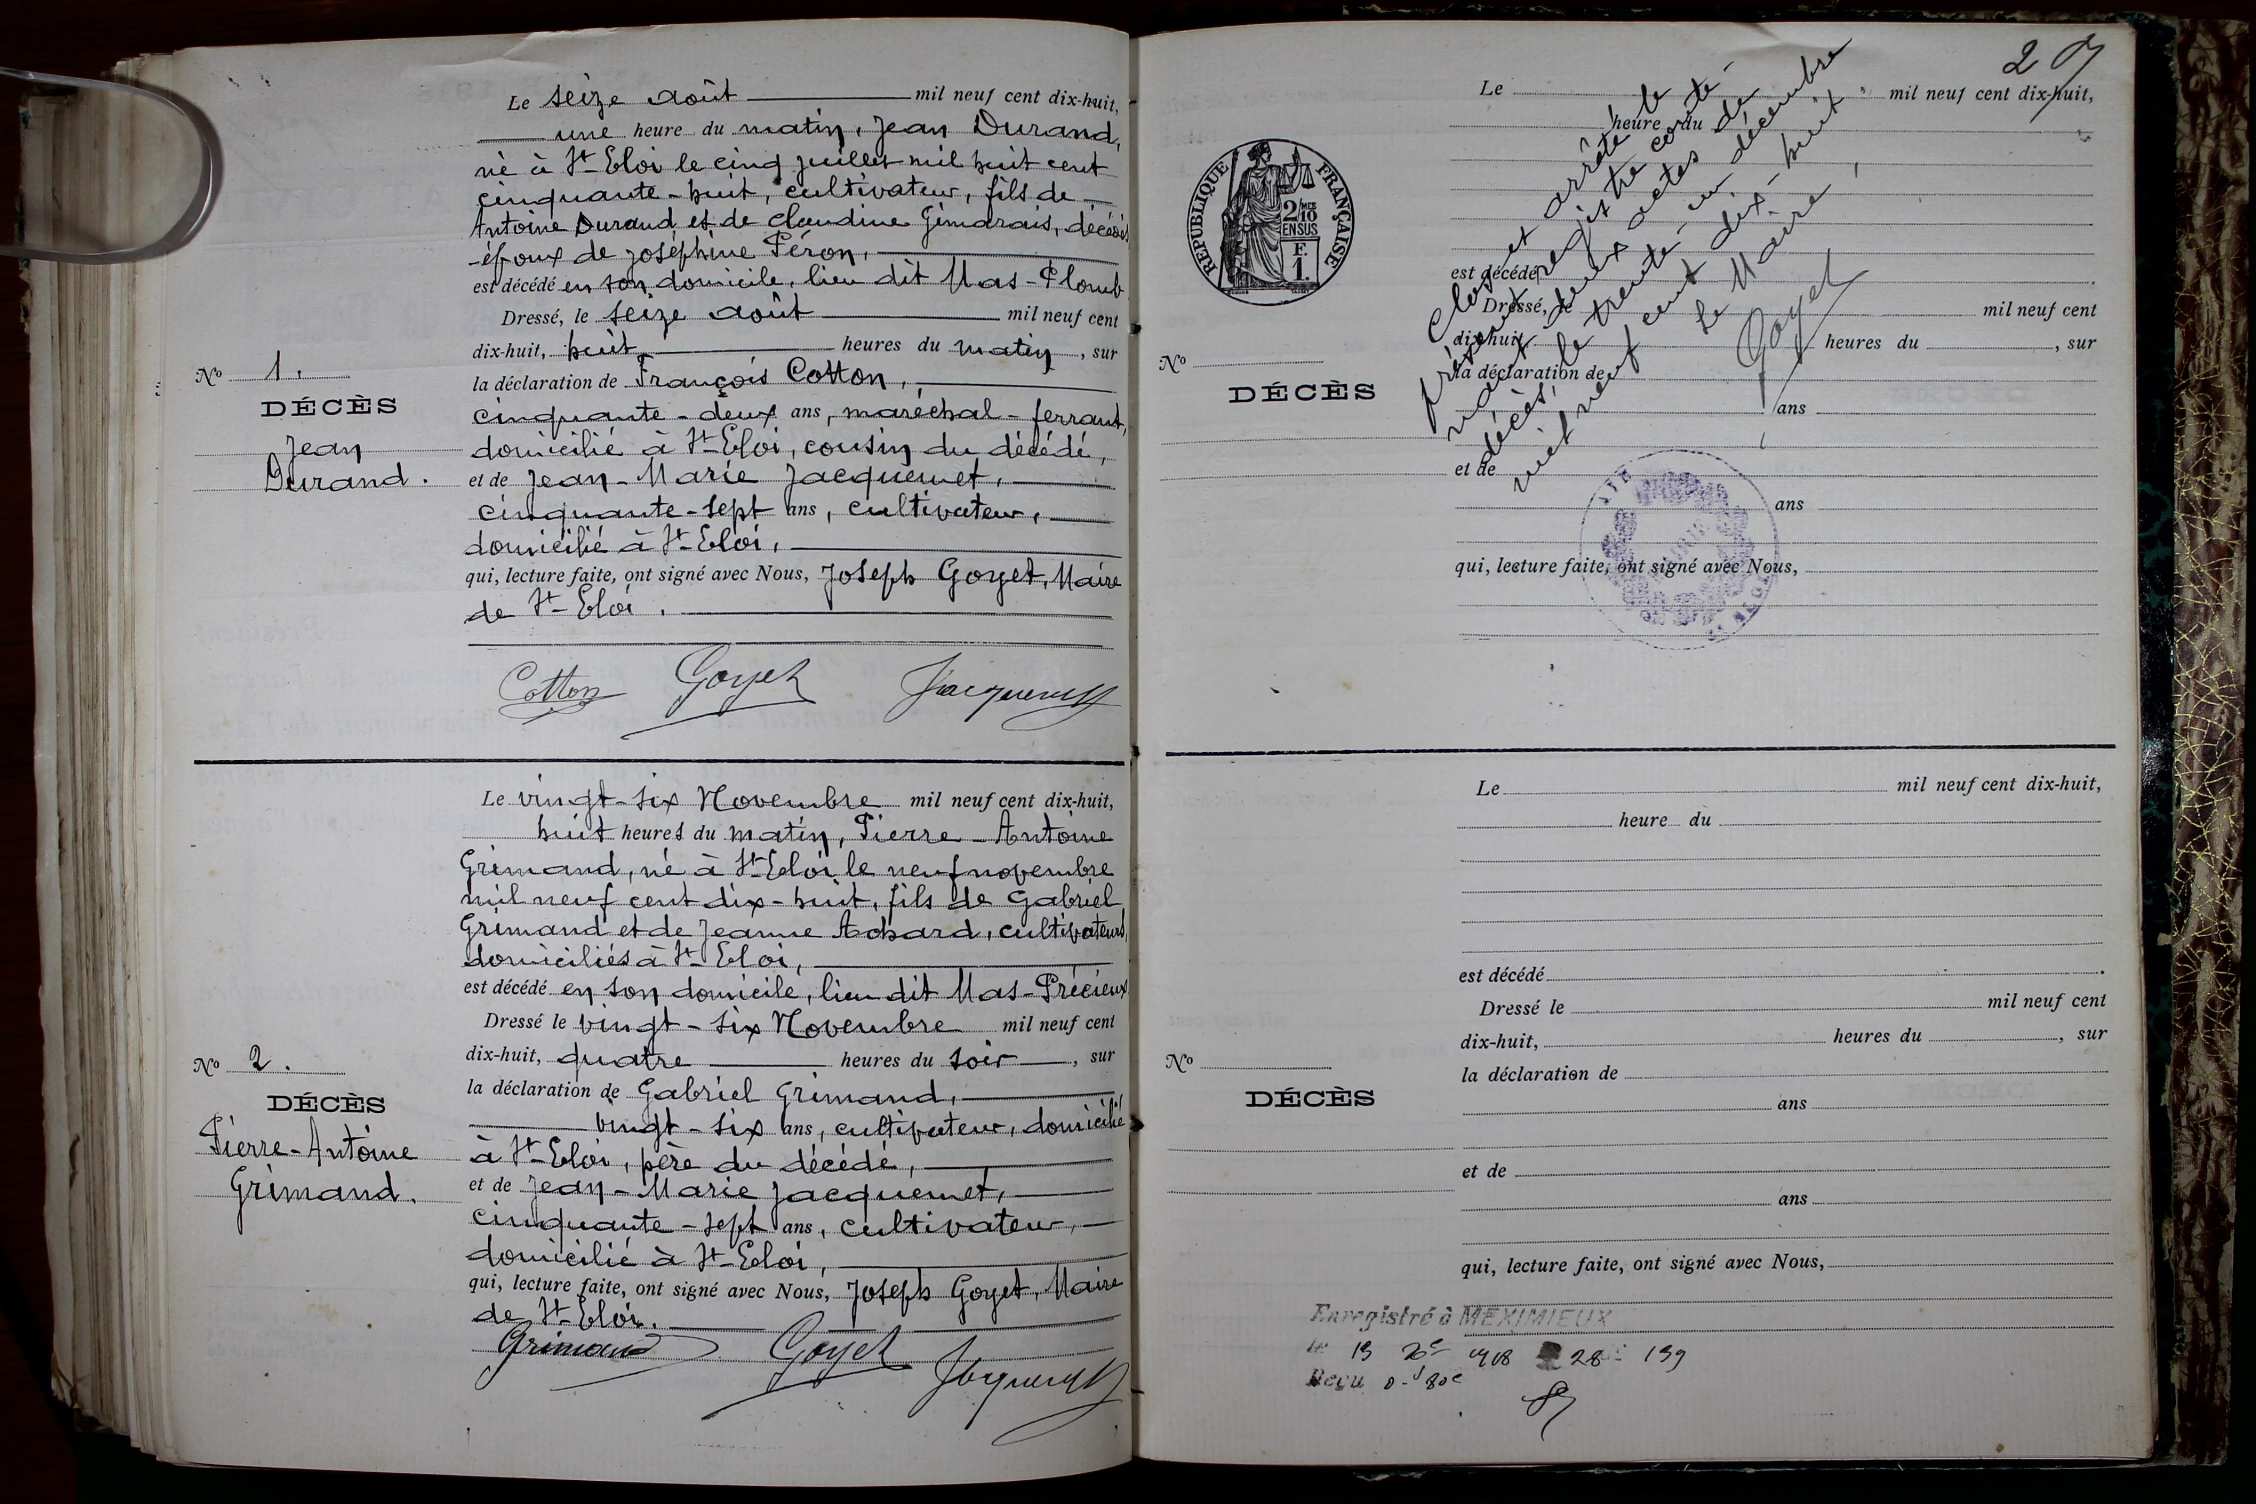 Le seize août mil neuf cent dix-huit,
une heure du matin, Jean Durand,
né à St-Eloi le cinq juillet mil huit cent
cinquante-huit, cultivateur, fils de
Antoine Durand et de Claudine Gimarais, décédés
-époux de Joséphine Péron,
est décédé en son domicile, lieu dit Mas-Plomb
Dressé, le seize août mil neuf cent
dix-huit, huit heures du matin, sur
No 1.
la déclaration de François Cotton,
DÉCÈS
cinquante-deux ans, maréchal-ferrant,
Jean
domicilié à St-Eloi, cousin du décédé,
Durand.
et de Jean-Marie Jacquemet,
cinquante-sept ans, cultivateur,
domicilié à St-Eloi,
qui, lecture faite, ont signé avec Nous, Joseph Goyet, Maire
de St-Eloi.
Cotton Goyet Jacquemet
Le vingt-six Novembre mil neuf cent dix-huit,
huit heures du matin, Pierre-Antoine
Grimand, né à St-Eloi le neuf novembre
mil neuf cent dix-huit, fils de Gabriel
Grimand et de Jeanne Achard, cultivateurs,
domiciliés à St-Eloi,
est décédé en son domicile, lieu dit Mas-Précieux
Dressé le vingt-six Novembre mil neuf cent
dix-huit, quatre heures du soir, sur
No 2.
la déclaration de Gabriel Grimand,
DÉCÈS
vingt-six ans, cultivateur, domicilié
Pierre-Antoine
à St-Eloi, père du décédé,
Grimand.
et de Jean-Marie Jacquemet,
cinquante-sept ans, cultivateur,
domicilié à St-Eloi,
qui, lecture faite, ont signé avec Nous, Joseph Goyet, Maire
de St-Eloi.
Grimand Goyet Jacquemet
2
Le mil neuf cent dix-huit,
heure du
RÉPUBLIQUE FRANÇAISE
2/10 MES
EN SUS
F.
1.
Clos et arrêté le
présent registre conte-
nant deux actes de
décès, le trente-un décembre
mil neuf cent dix-huit.
Le Maire,
Goyet
est décédé
Dressé, le mil neuf cent
dix-huit, heures du , sur
No
la déclaration de
DÉCÈS
ans
et de
ans
qui, lecture faite, ont signé avec Nous,
Le mil neuf cent dix-huit,
heure du
est décédé
Dressé le mil neuf cent
dix-huit, heures du , sur
No
la déclaration de
DÉCÈS
ans
et de
ans
qui, lecture faite, ont signé avec Nous,
Enregistré à MEXIMIEUX
le 13 1918 28 159
Reçu